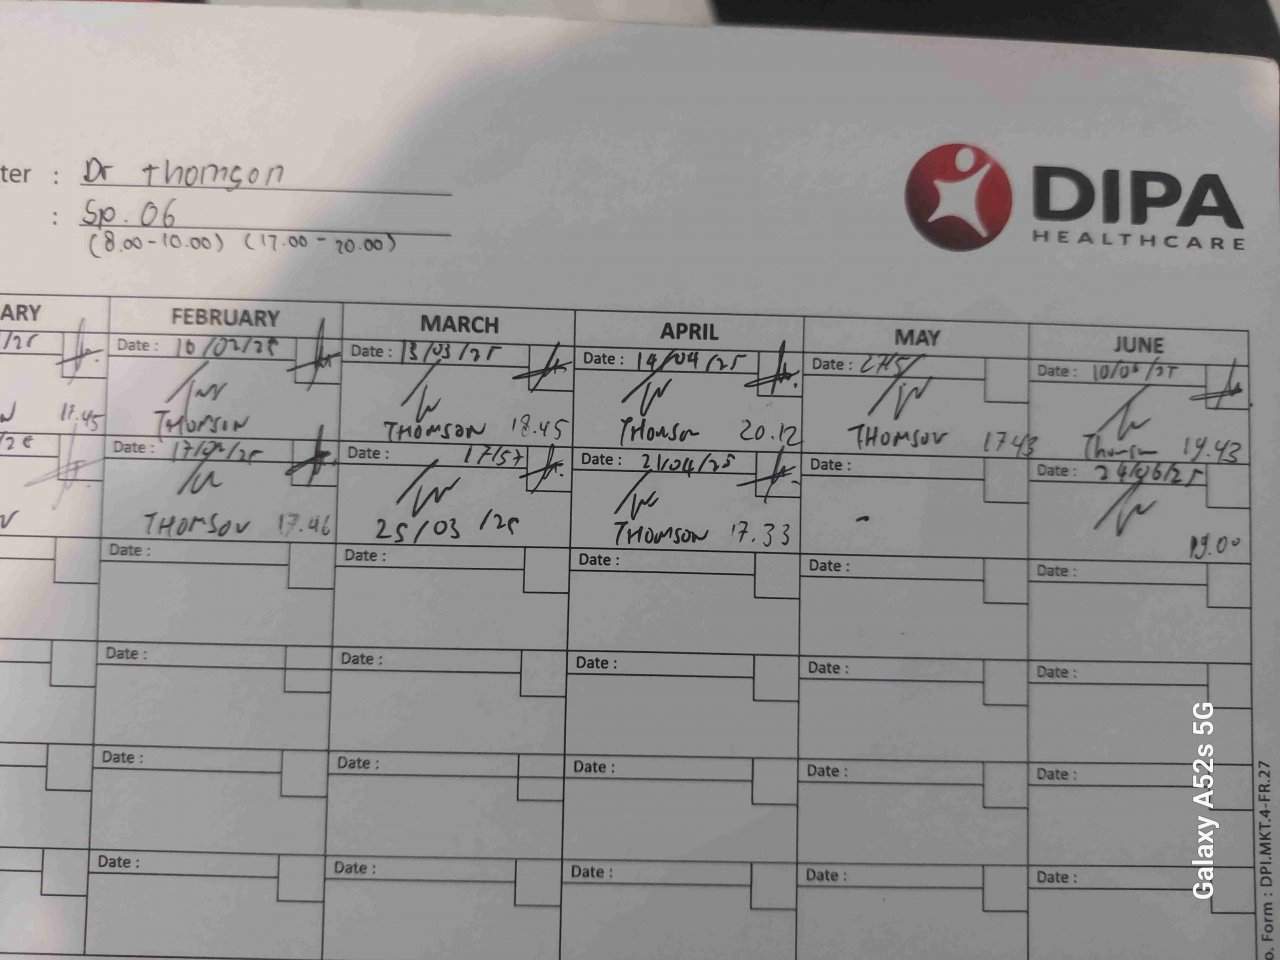 ter : Dr Thomson
: Sp. 06
(8.00-10.00) (17.00-20.00)
DIPA
HEALTHCARE
ARY FEBRUARY MARCH APRIL MAY JUNE
/25 Date : 10/02/25 Date : 13/03/25 Date : 14/04/25 Date : Date : 10/06/25
17.45 THOMSON THOMSON 18.45 THOMSON 20.12 THOMSON 17.43 Thomson 19.43
Date : 17/02/25 Date : 17/57 Date : 21/04/25 Date : 24/06/25
THOMSON 17.46 25/03/25 THOMSON 17.33 - 19.00
Date : Date : Date : Date : Date :
Date : Date : Date : Date : Date :
Date : Date : Date : Date : Date :
Date : Date : Date : Date : Date :
o. Form : DPI.MKT.4-FR.27
Galaxy A52s 5G